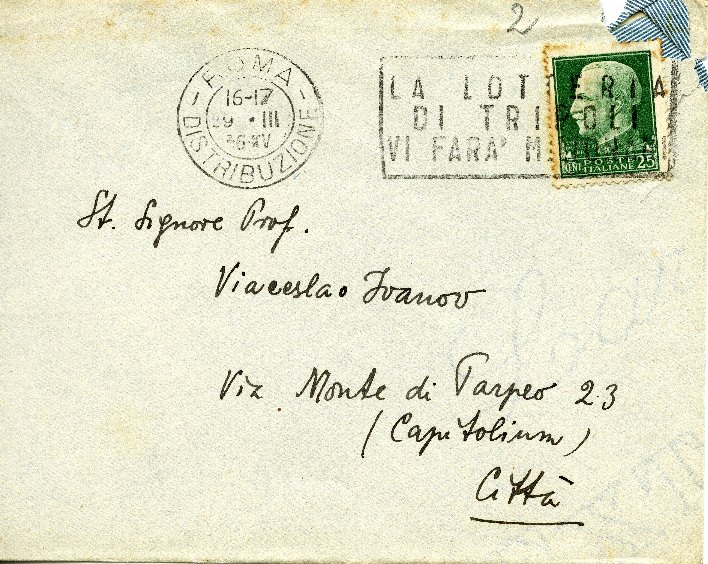 2
ROMA
16-17
DISTRIBUZIONE
LA LOTTERIA
DI TRIPOLI
VI FARA'
POSTE
ITALIANE
25
St. Signore Prof.
Viaceslao Ivanov
Via Monte di Tarpeo 23
(Capitolium)
Città